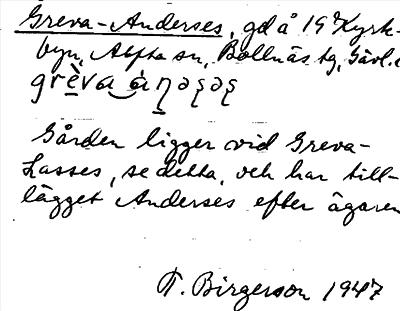 Greva-Anderses, gd å 19 Kyrk-
byn, Alfta sn, Bollnäs tg, Gävl.
grèva ánəsəs
Gården ligger vid Greva-
Lasses, se detta, och har till-
lägget Anderses efter ägaren
T. Birgerson 1947